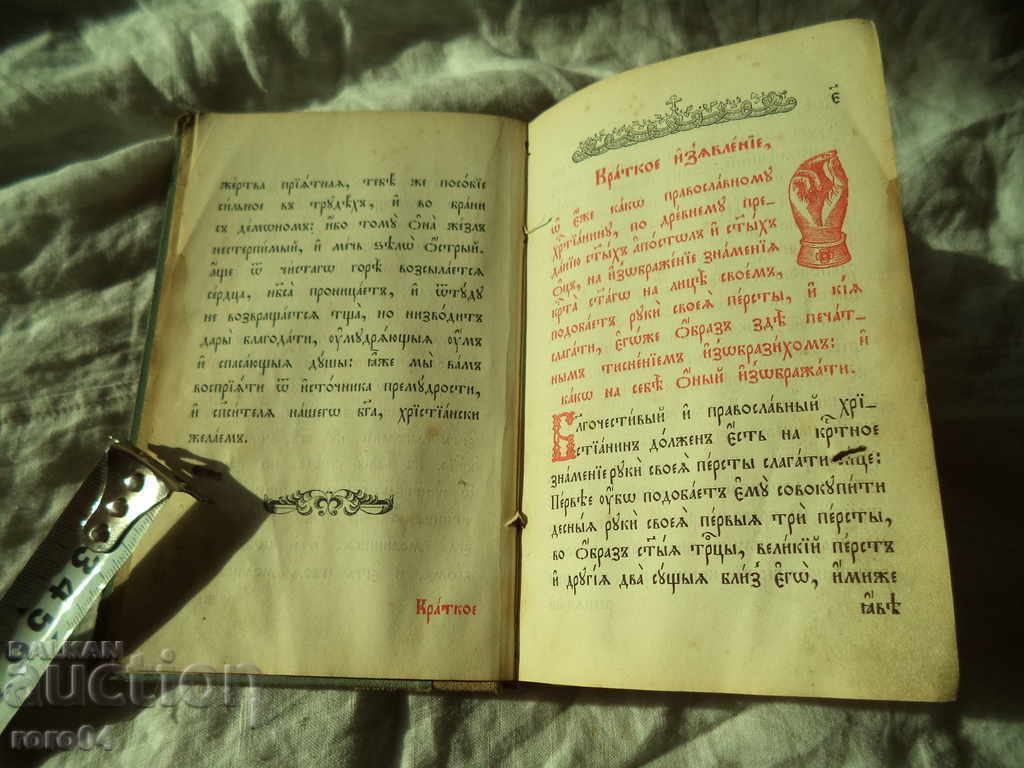 же́ртва прїѧ́тнаѧ, тебѣ́ же посо́бїе
си́льное въ трꙋдѣ́хъ, и҆ во бра́ни
съ де́мѡномъ: и҆́бо томꙋ̀ ѻ҆на̀ же́злъ
нестерпи́мый, и҆ ме́чь ѕѣлѡ̀ ѻ҆́стрый.
а҆́ще ѿ чи́стагѡ го́рѣ возсыла́етсѧ
се́рдца, нб҃са̀ проница́етъ, и҆ ѿтꙋ́дꙋ
не возвраща́етсѧ тща̀, но низво́дитъ
да́ры благода́ти, ᲂу҆мꙋдрѧ́ющыѧ ᲂу҆́мъ
и҆ спаса́ющыѧ дꙋ́шы: ꙗ҆̀же мы̀ ва́мъ
воспрїѧ́ти ѿ и҆сто́чника премꙋ́дрости,
и҆ сп҃си́телѧ на́шегѡ бг҃а, хрїстїа́нски
жела́емъ.
Кра́ткое
є҃
Кра́ткое и҆з̾ѧвле́нїе,
ѡ҆ є҆́же ка́кѡ правосла́вномꙋ
хрⷭ҇тїа́нинꙋ, по дре́внемꙋ пре-
да́нїю ст҃ы́хъ а҆пⷭ҇то́лъ и҆ ст҃ы́хъ
ѻ҆тє́цъ, на и҆з̾ѡбраже́нїе зна́менїѧ
крⷭ҇та̀ ст҃а́гѡ на лицѣ̀ свое́мъ,
подоба́етъ рꙋкѝ своеѧ̀ пе́рсты, и҆ кі́ѧ
слага́ти, є҆гѡ́же ѻ҆́бразъ здѣ̀ печа́т-
нымъ тисне́нїемъ и҆з̾ѡбрази́хомъ: и҆
ка́кѡ на себѣ̀ ѻ҆́ный и҆з̾ѡбража́ти.
Бл҃гочести́вый и҆ правосла́вный хрї-
стїа́нинъ до́лженъ є҆́сть на крⷭ҇тное
зна́менїе рꙋкѝ своеѧ̀ пе́рсты слага́ти си́це:
Пе́рвѣе ᲂу҆́бѡ подоба́етъ є҆мꙋ̀ совокꙋпи́ти
десны́ѧ рꙋкѝ своеѧ̀ пе́рвыѧ трѝ пе́рсты,
во ѻ҆́бразъ ст҃ы́ѧ трⷪ҇цы, вели́кїй пе́рстъ
и҆ дрꙋгі́ѧ два̀ сꙋ́щыѧ бли́з̾ є҆гѡ̀, и҆́миже
ꙗ҆́вѣ
3 4 5
BALKAN
auction
roro04